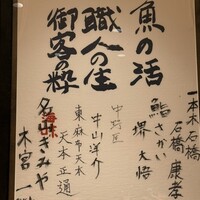 魚の活
職人の生
御客の粋
一本木石橋
石橋康孝
鮨さかい
堺大悟
中山洋介
東麻布天本
天本正通
海味
名山きみや
木宮一